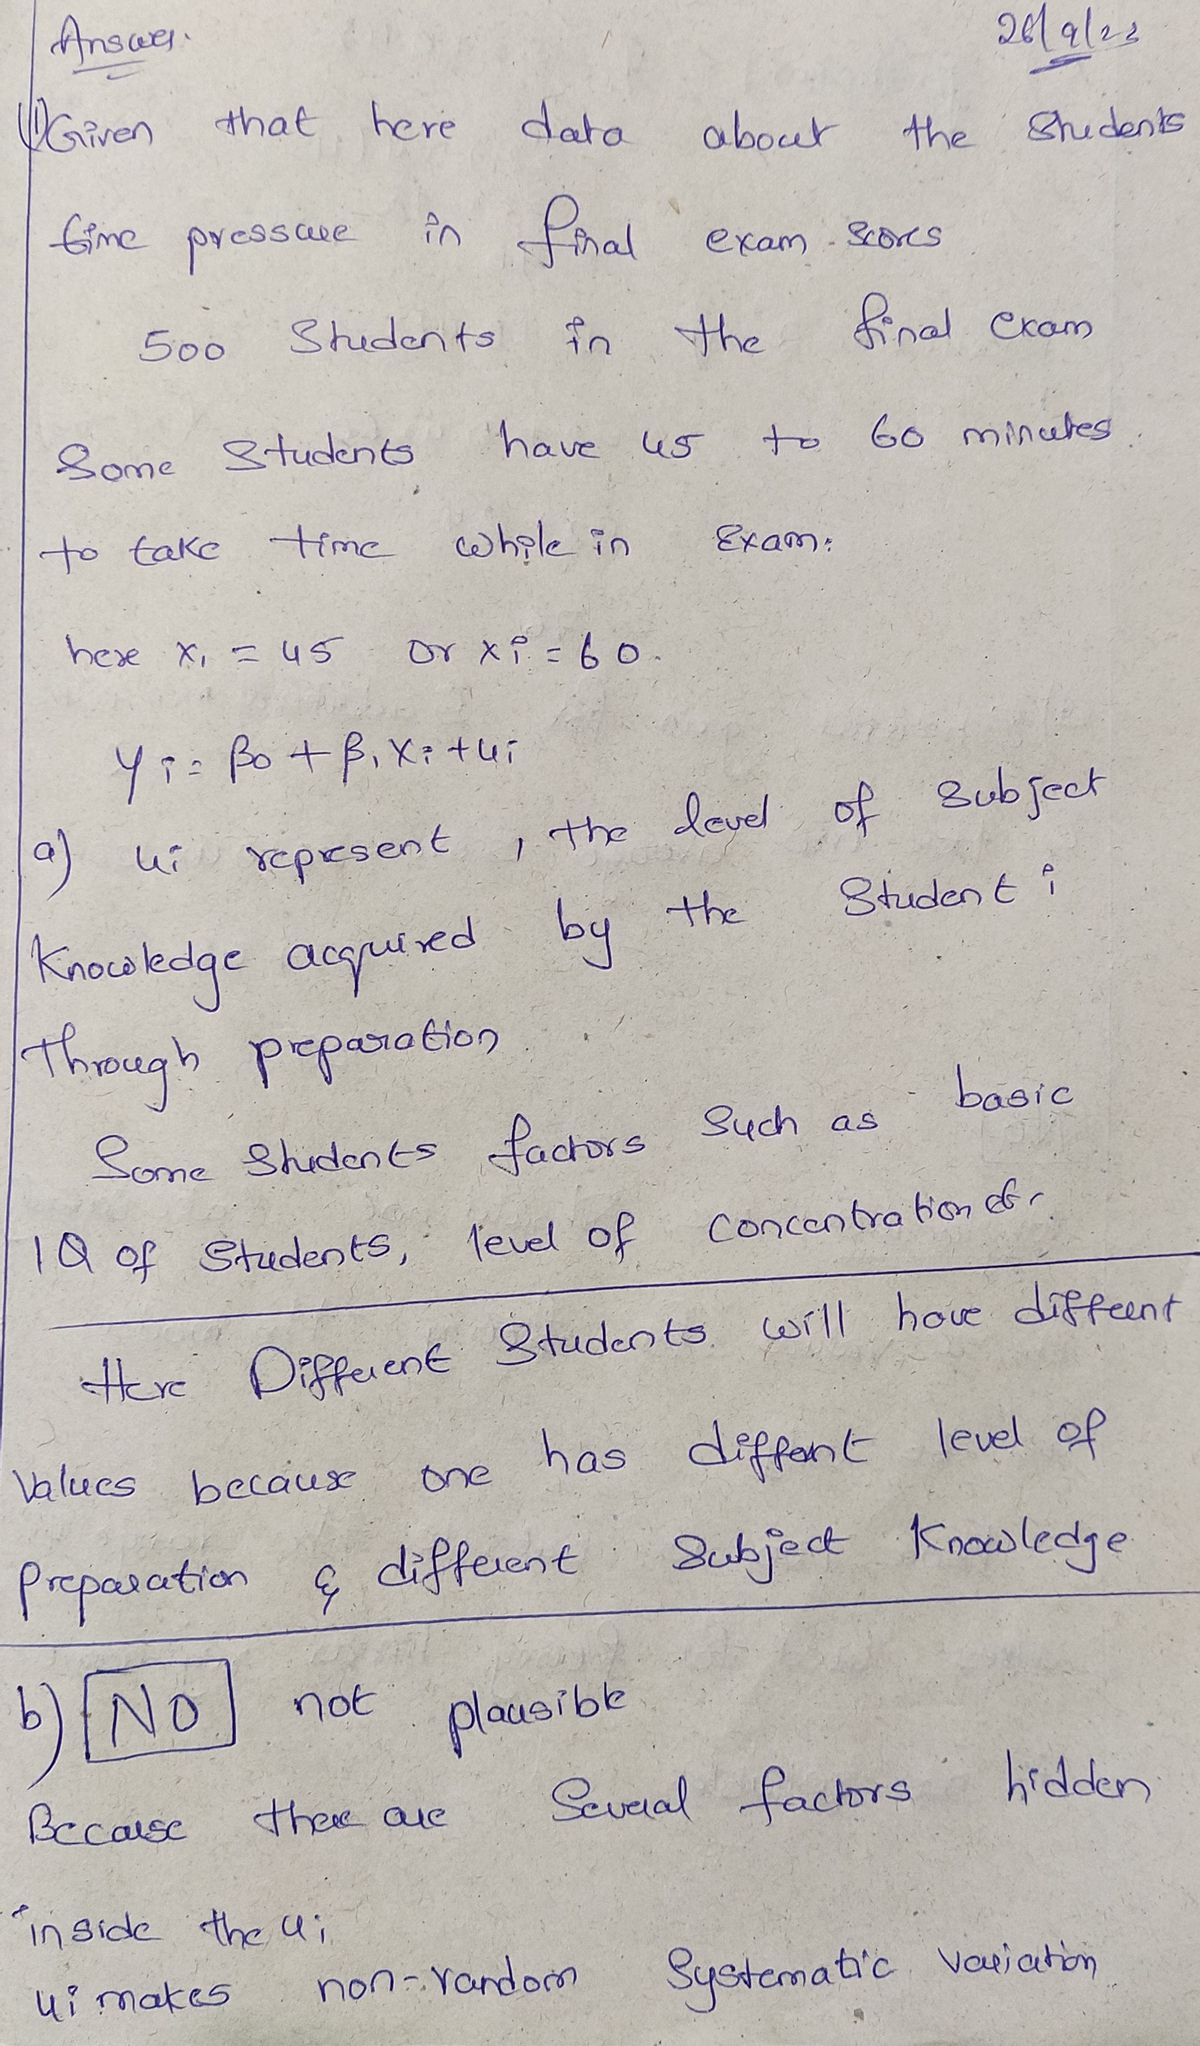 Answer. 26/9/23
(1) Given that here data about the students
time pressure in final exam scores
500 Students in the final exam
Some Students have 45 to 60 minutes.
to take time while in Exam:
here x1 = 45 or xi = 60.
yi = β0 + β1 Xi + ui
a) ui represent, the level of subject
Knowledge acquired by the Student i
Through preparation
Some Students factors Such as basic
IQ of Students, level of concentration
Here Different Students will have different
Values because one has differnt level of
preparation & different Subject Knowledge
b) NO not plausible
Because there are Several factors hidden
inside the ui
ui makes non-random Systematic variation